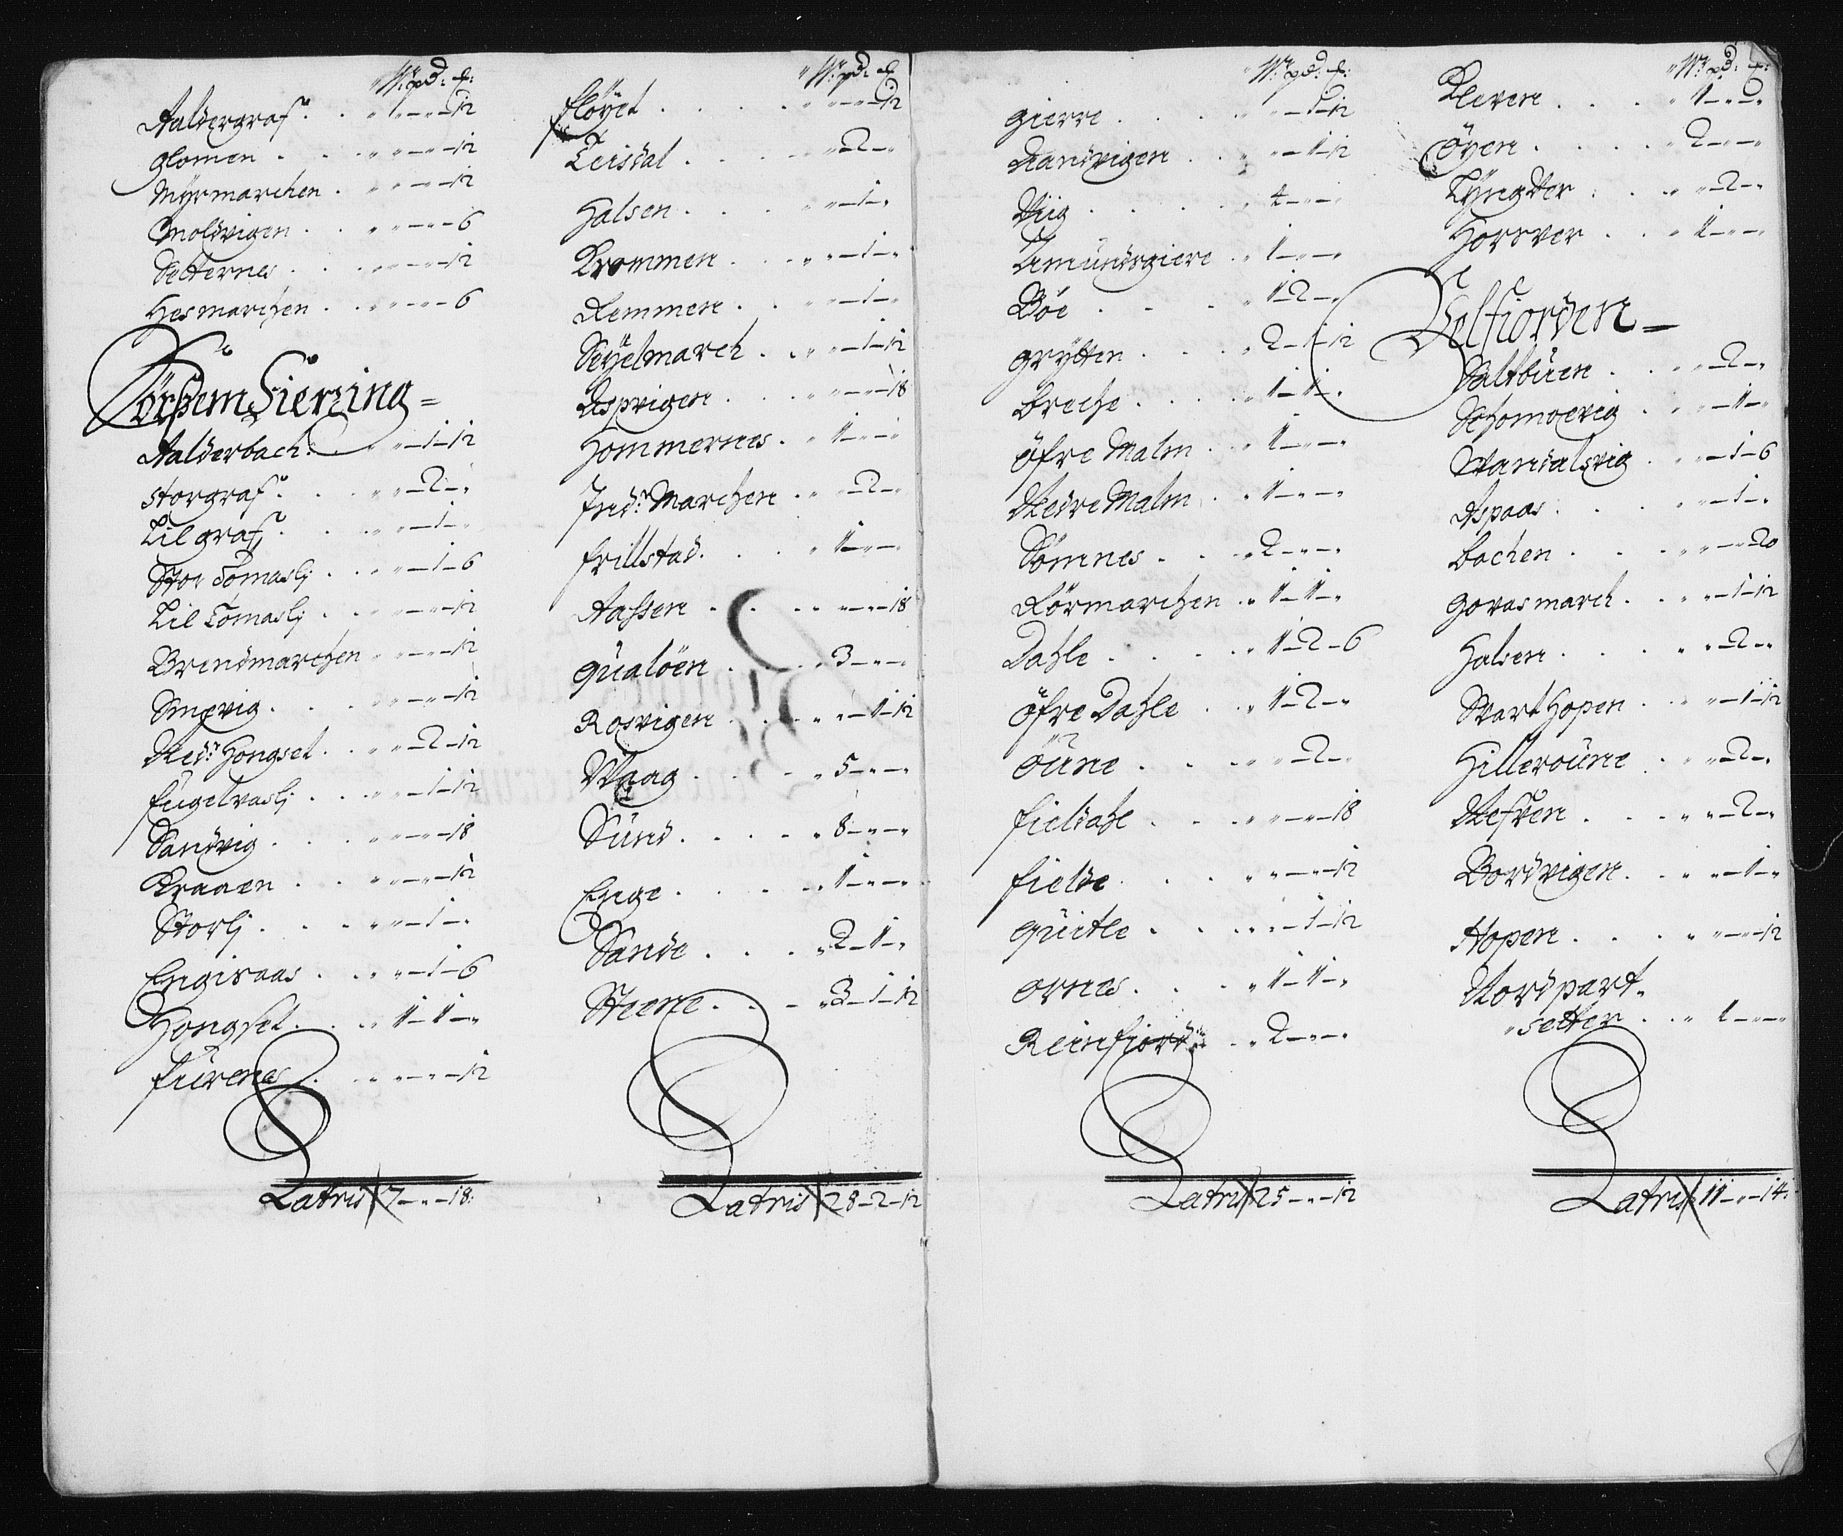 W: pd: ƺ:
Aaldergraf: . . „-„-12
Glomen . . . „-„-12
Myrmarchen . „-„-12
Moldvigen . . „-„-6
Setternes . . „-„-12
Hesmarchen . . „-„-6
Törhem Fierzing =
Aalderbach . „-1-12
Storgraf: . . „-2-„
Lil graf: . . „-1-„
Stor Tomaslj . . „-1-6
Lil Tomaslj . . „-„-12
Brendmarchen „-„-12
Smevig . . . „-„-12
Nedr Hongset . . „-2-12
Fugelvaslj . . . „-1-12
Sandvig . . . „-„-18
Kraaen . . . „-„-12
Storlj . . . „-1-„
Engisaas . . . „-1-6
Hongset . . . 1-1-„
Furenes . . . „-„-12
Latris 7-„-18:
W: pd: ƺ:
Fløyet . . . . „-„-12
Leisdal . . . „-2-„
Halsen . . . „-1-„
Krommen . . . „-1-„
Remmen . . . „-1-„
Seyelmarch . . „-1-12
Espvigen . . . „-„-18
Hommernes . „ 1-„-„
Indr Marchen . „-2-„
Frillstad . . . 1-„-„
Aassen . . . „-„-18
Qualöen . . . 3-„-„
Rosvigen . . . „-1-12
Waag . . . 5-„-„
Sund . . . . 8-„-„
Enge . . . . 1-„-„
Sande . . . 2-1-„
Steene . . . 3-1-12
Latris 28-2-12
W: pd: ƺ:
Gierre . . . . „-1-12
Aandvigen . . „-1-12
Viig . . . . 4-„-„
Aamundsgiere . 1-„-„
Böe . . . 1-2-„
Grytten . . . 2-1-12
Breche . . . . 1-1-„
Öfre Malm . . 1-„-„
Nedre Malm . . 1-„-„
Sömnes . . . 2-„-„
Rörmarchen . . 1-1-„
Dahle . . . . 1-2-6
Öfre Dahle . . 1-2-„
Öune . . . . „-2-„
Fieldahl . . . „-„-18
Fielde . . . „-„-12
Quitle . . . „-1-12
Ornes . . . 1-1-„
Reinfiord . . 2-„-„
Latris 25-„-12
W: pd: ƺ:
Kleven . . . 1-„-„
Öyen . . . . 2-„-„
Lyngder . . . „-2-„
Horsver . . . 1-„-„
Velfiorden =
Saltbuen . . . „-2-„
Schomoevig . . „-1-„
Wandalsvig . . „-1-6
Aspaas . . . „-1-„
Bachen . . . „-„-20
Govasmarch . . „-1-12
Halsen . . . . „-2-„
Svarthopen . . „-1-12
Hilleroune . . „-2-„
Nefven . . . „-2-„
Bordvigen . . . „-1-„
Hopen . . . . „-„-12
Nordpart„
„setter . . 1-„-„
Latris 11-„-14: